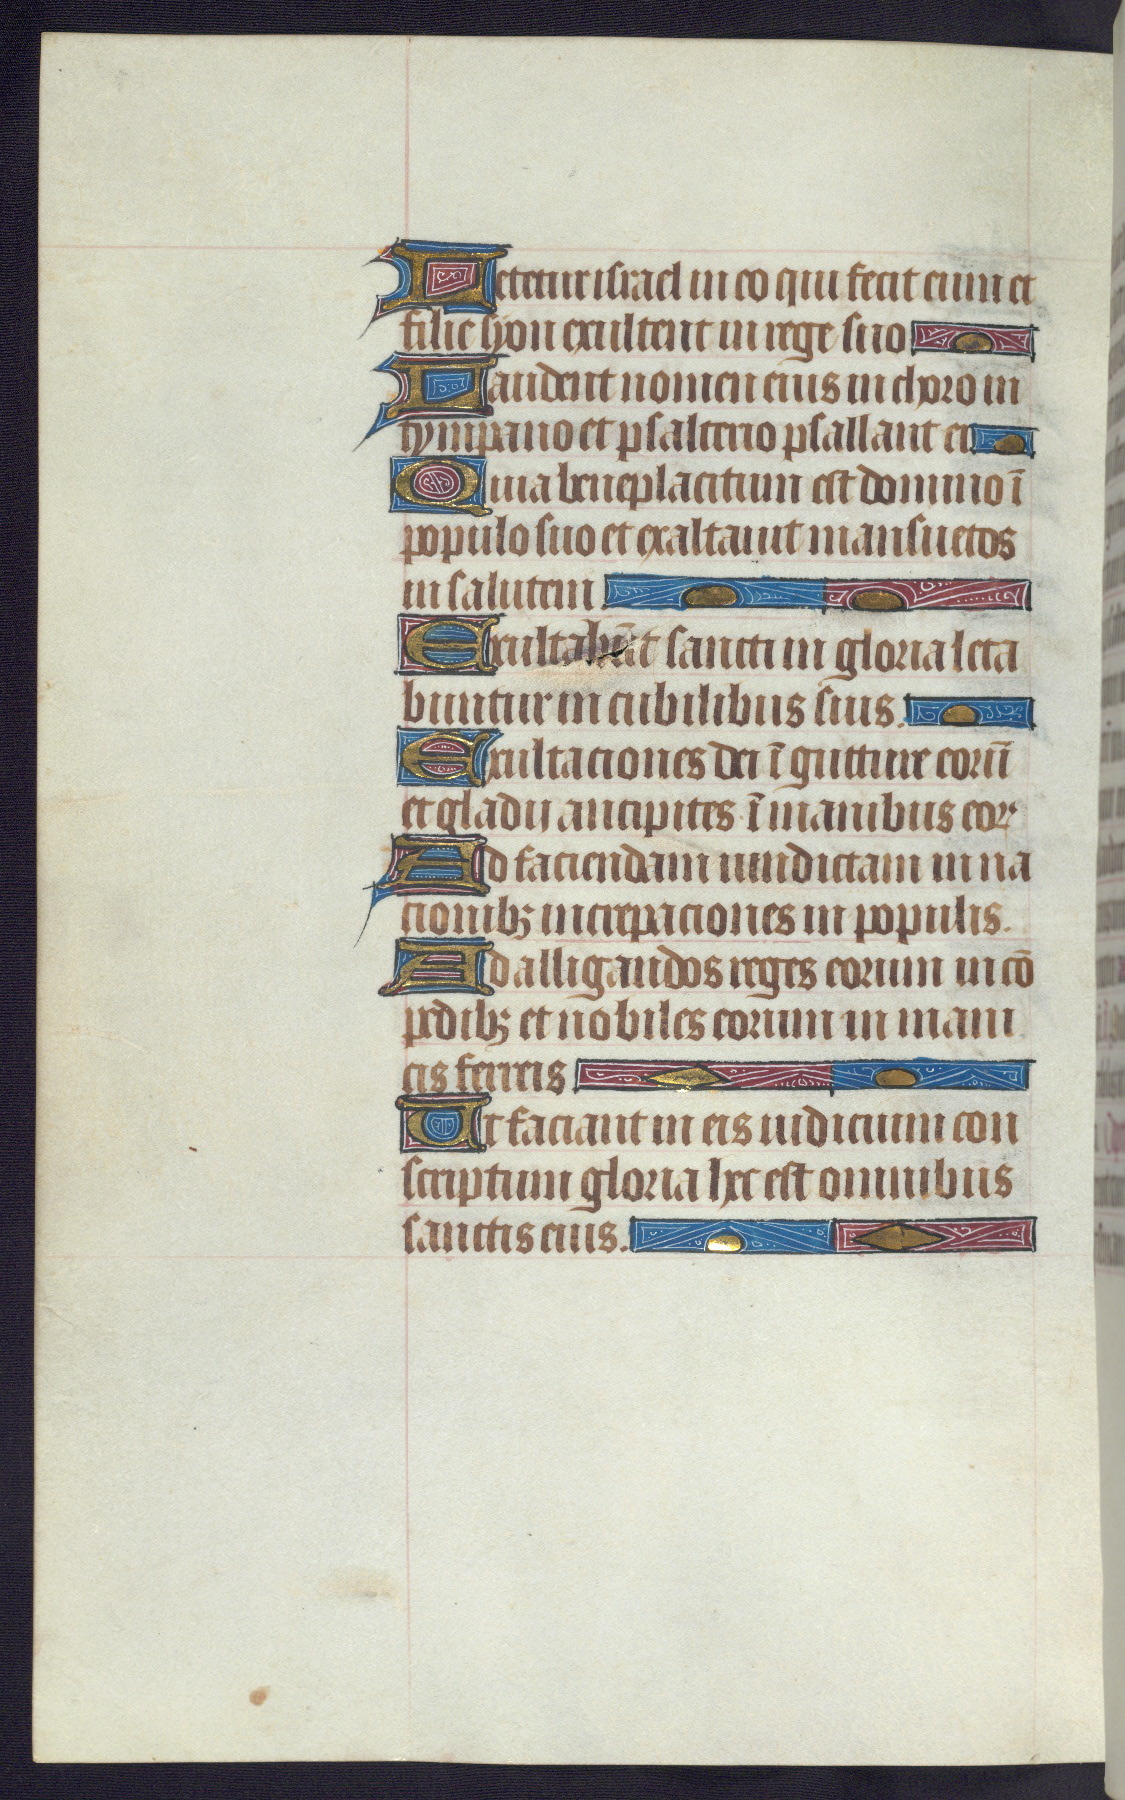 Letetur israel in eo qui fecit eum et
filie syon exultent in rege suo
Laudent nomen eius in choro in
tympano et psalterio psallant ei
Quia beneplacitum est domino ī
populo suo et exaltauit mansuetos
in salutem
Exultabūt sancti in gloria leta
buntur in cubilibus suis.
Exultaciones dei ī gutture eorū
et gladij ancipites ī manibus eorꝝ
Ad faciendam uindictam in na
cionibꝫ increpaciones in populis.
Ad alligandos reges eorum in cō
pedibꝫ et nobiles eorum in mani
cis ferreis
Ut faciant in eis iudicium con
scriptum gloria hec est omnibus
sanctis eius.